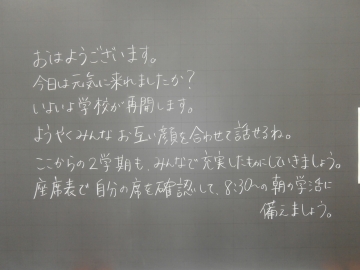 おはようございます。
今日は元気に来れましたか？
いよいよ学校が再開します。
ようやくみんなお互い顔を合わせて話せるね。
ここからの2学期も、みんなで充実したものにしていきましょう。
座席表で自分の席を確認して、8:30〜の朝の学活に
備えましょう。